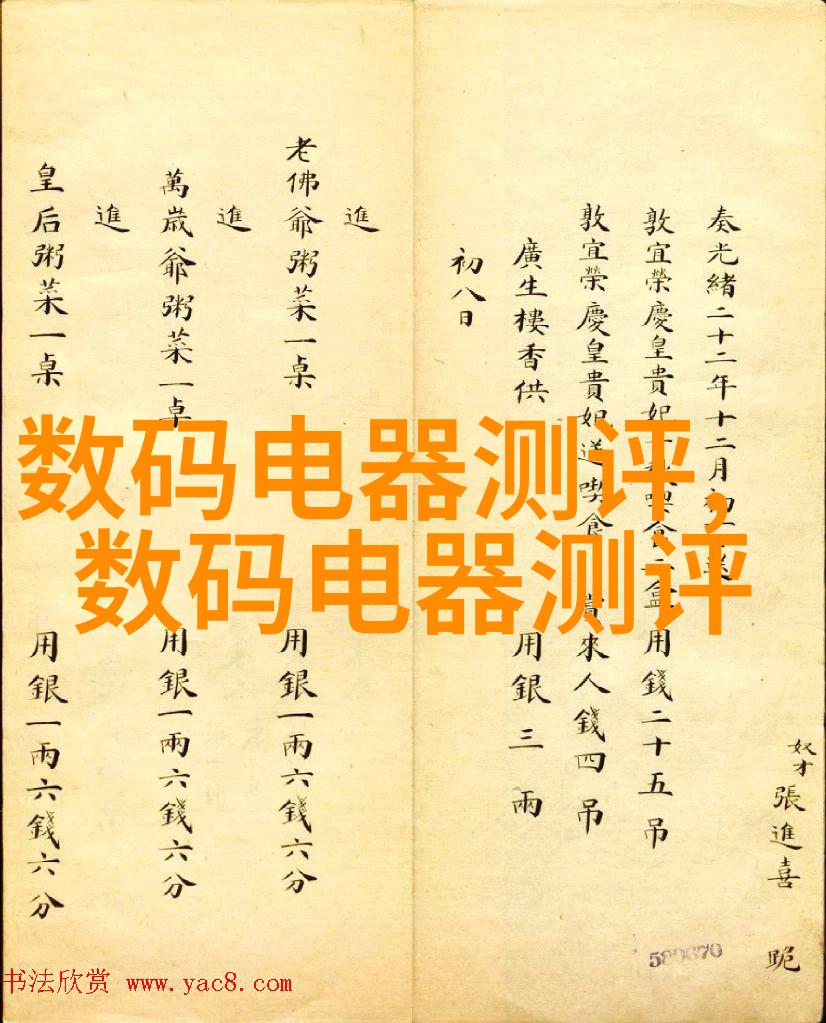 奴才張進喜 跪
奏光緒二十二年十二月初
敦宜榮慶皇貴妃 喫食二盒用錢二十五吊
敦宜榮慶皇貴妃送喫食 賞來人錢四吊
廣生樓香供 用銀三兩
初八日
進
老佛爺粥菜一桌 用銀一兩六錢六分
進
萬歲爺粥菜一卓 用銀一兩六錢六分
進
皇后粥菜一桌 用銀一兩六錢六分
数码电器测评,
数码电器测评
书法欣赏 www.yac8.com